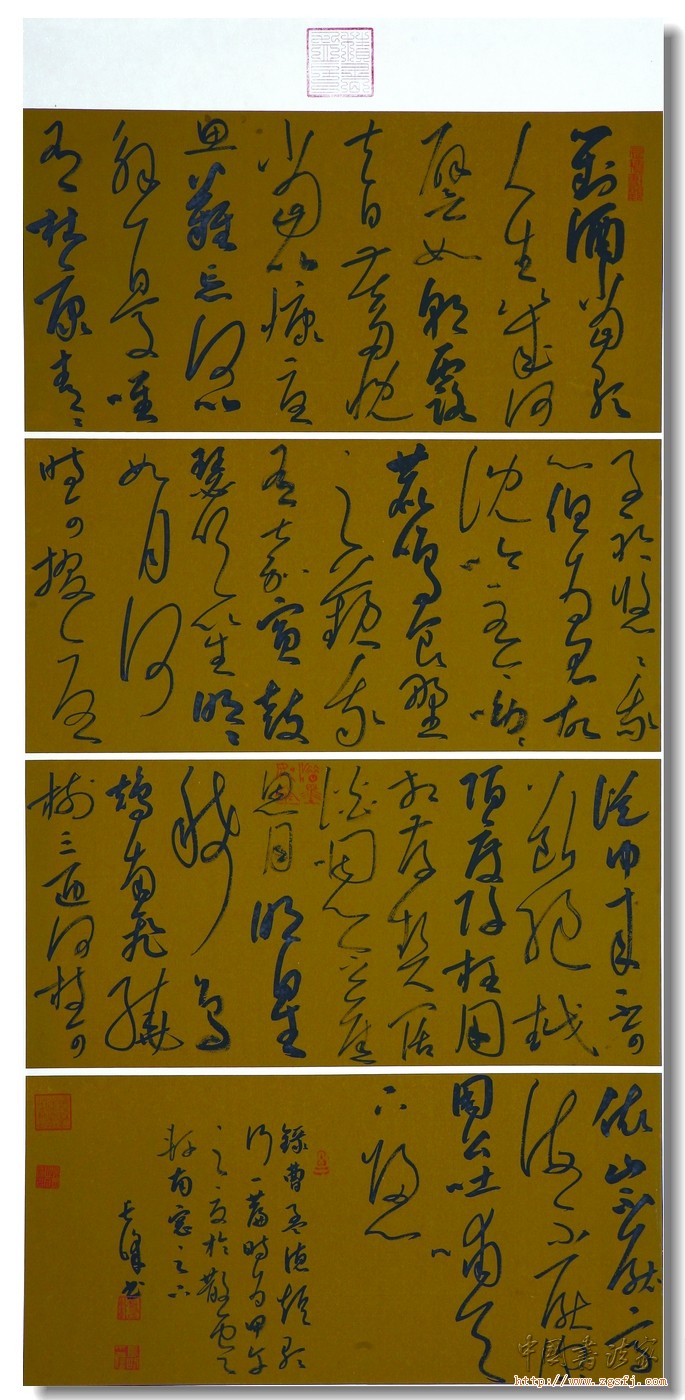 對酒當歌
人生幾何
譬如朝露
去日苦多慨
當以慷憂
思難忘何以
解憂唯
有杜康青〻
子衿悠〻我
心但為君故
沈吟至今呦〻
鹿鳴食野
之苹我
有嘉賓鼓
瑟吹笙明〻
如月何
時可掇憂
從中來不可
斷絕越
陌度阡枉用
相存契闊
談讌心念舊
恩月明星
稀烏
鵲南飛繞
樹三匝何枝可
山不厭高
海不厭深
周公吐哺天
下歸心
錄曹孟德短歌
行一首時為甲午
之夏於散雲
軒南窗之下
書
中国书法家
http://www.zgsfj.com